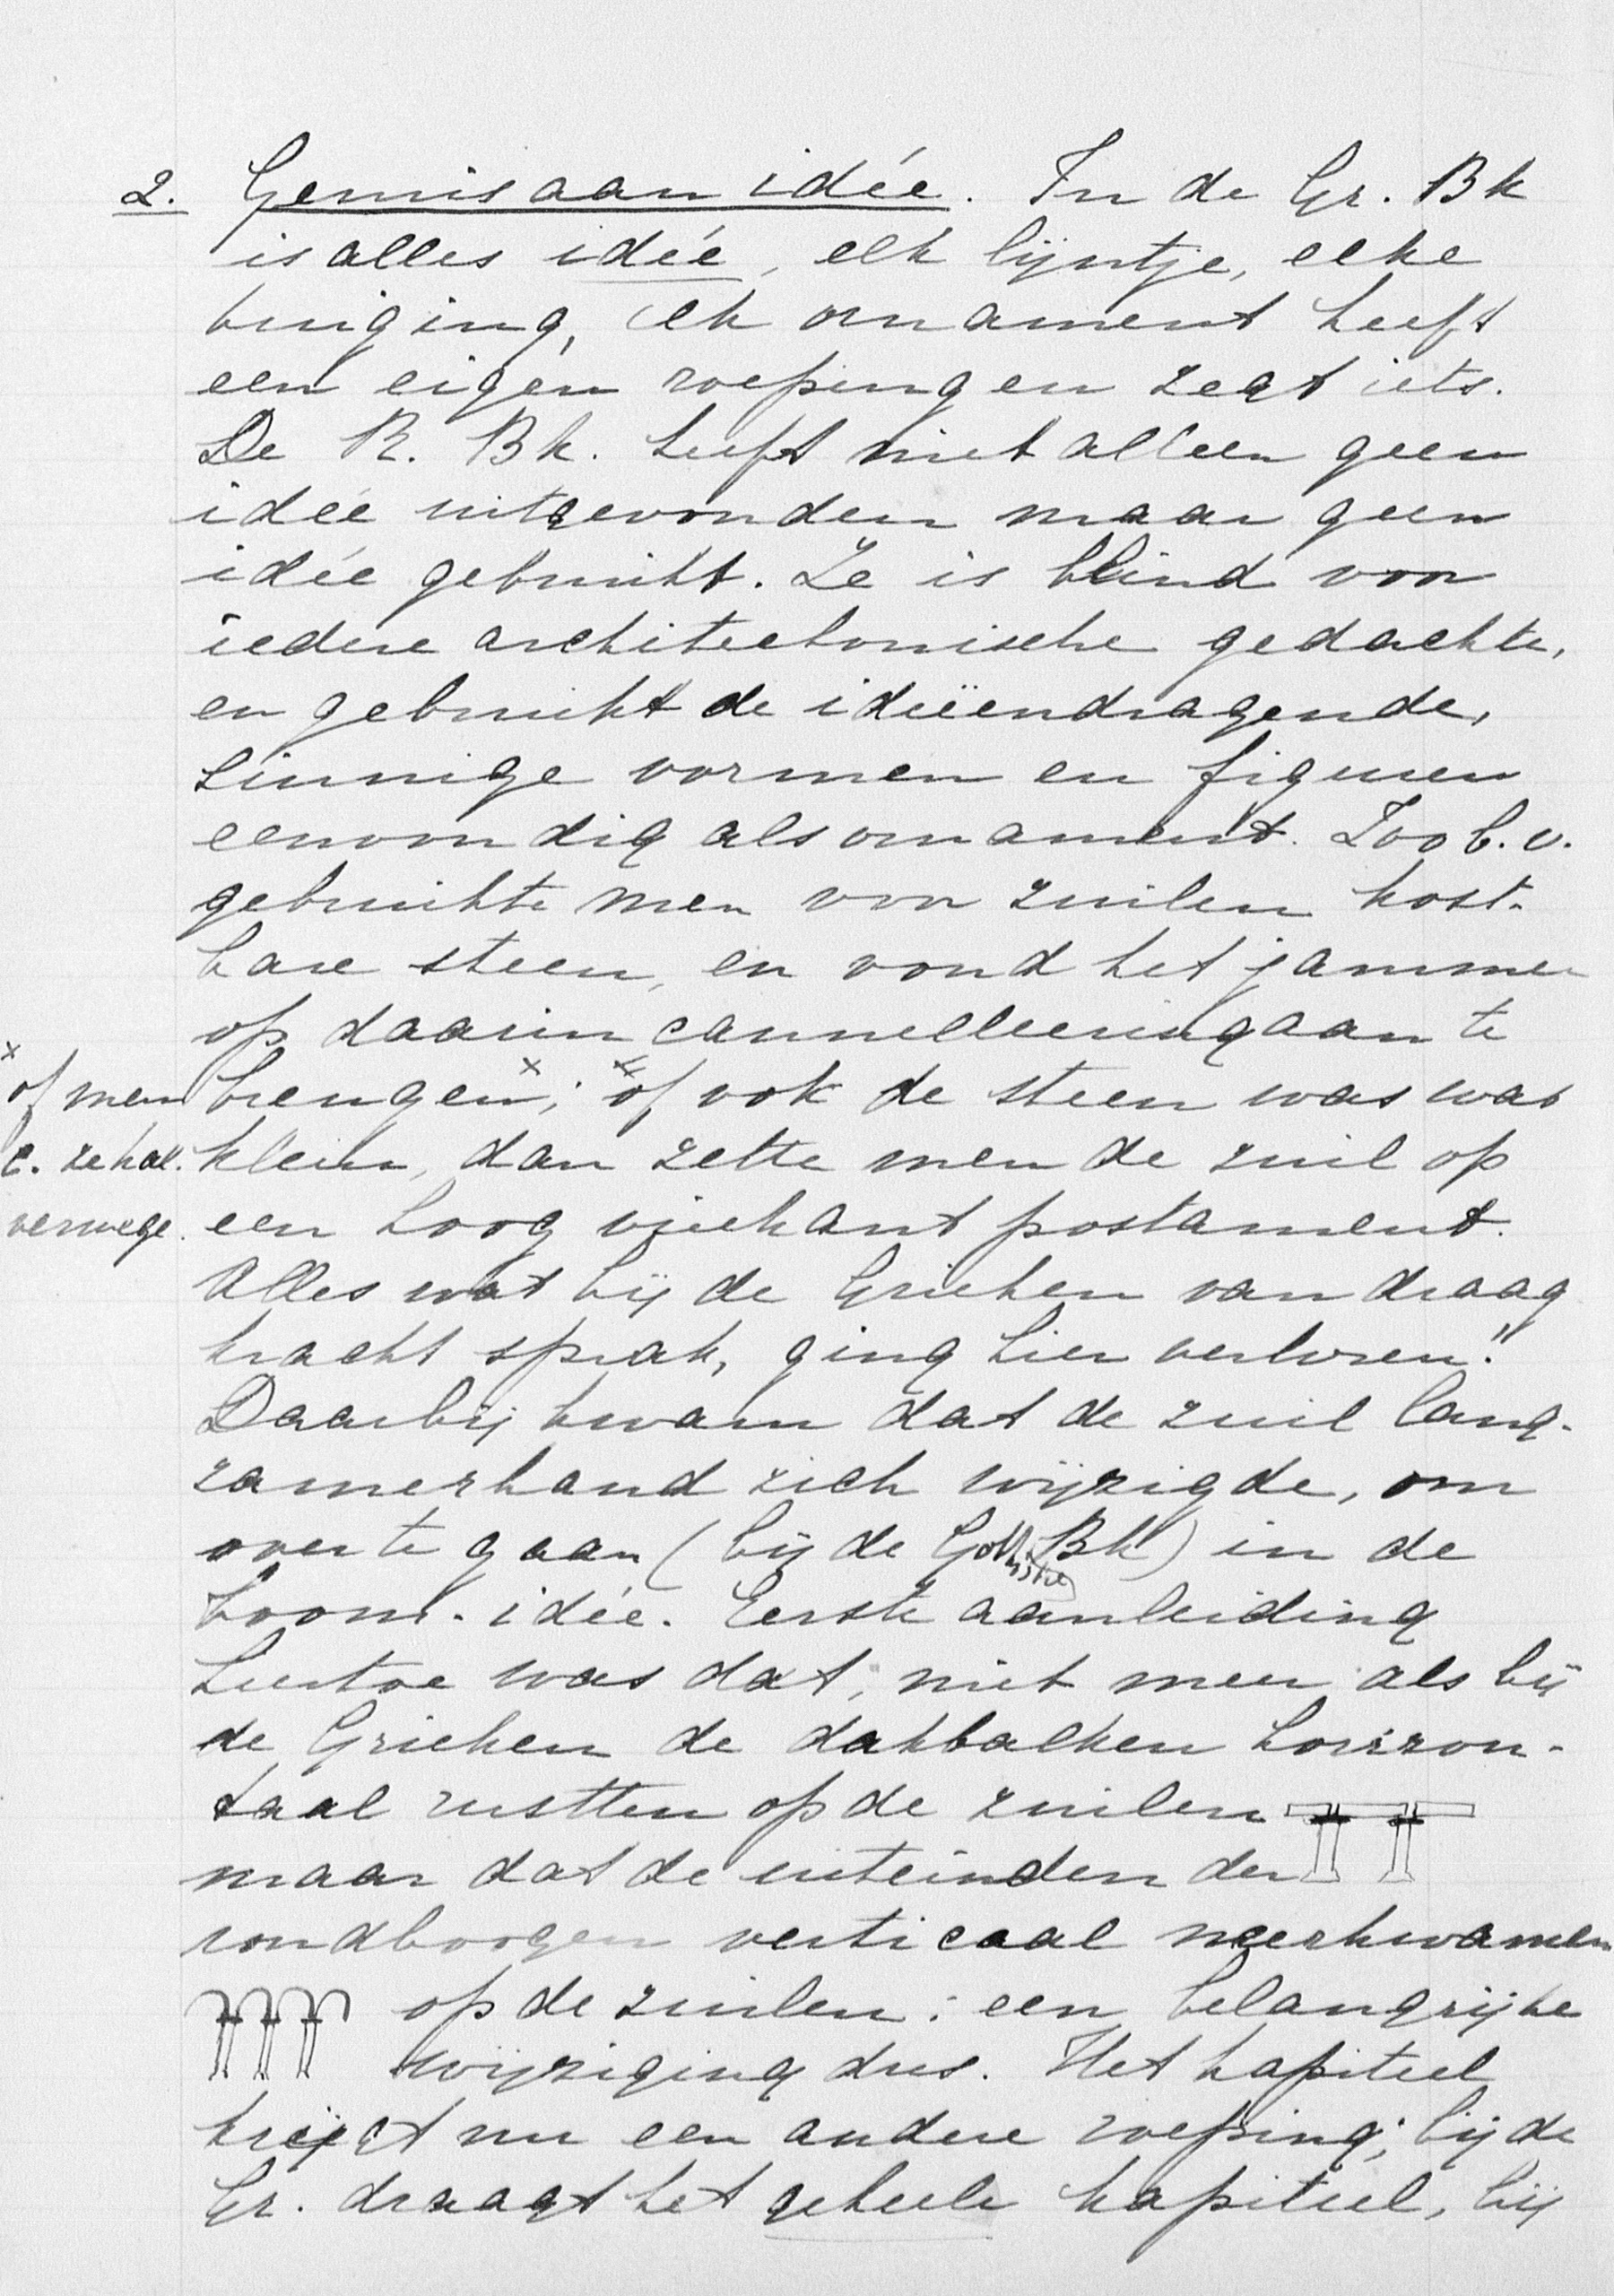 2. Gemis aan idée. In de Gr. Bk
is alles idée, elk lijntje, elke
buiging, elk ornament heeft
een eigen roeping en zegt iets.
De R. Bk. heeft niet alleen geen
idée uitgevonden maar geen
idée gebruikt. Ze is blind voor
iedere architectonische gedachte,
en gebruikt de ideëendragende,
sinnige vormen en figuren
eenvoudig als ornament. Zoo b.v.
gebruikte men voor zuilen kost-
bare steen, en vond het jammer
op daarin cannelleering aan te
brengen x; x of ook de steen was wat
x of men
c. ze hal.
verwege.
klein, dan zette men de zuil op
een hoog vierkant postament.
Alles wat bij de Grieken van draag
kracht sprak, ging hier verloren!
Daarbij kwam dat de zuil lang-
zamerhand zich wijzigde, om
over te gaan (bij de Gothische Bk) in de
boom-idée. Eerste aanleiding
hiertoe was dat, niet meer als bij
de Grieken de dakbalken horizon-
taal rustten op de zuilen
maar dat de uiteinden der
rondboogen verticaal neerkwamen
op de zuilen: een belangrijke
wijziging dus. Het kapiteel
krijgt nu een andere roeping; bij de
Gr. draagt het geheele kapiteel, bij